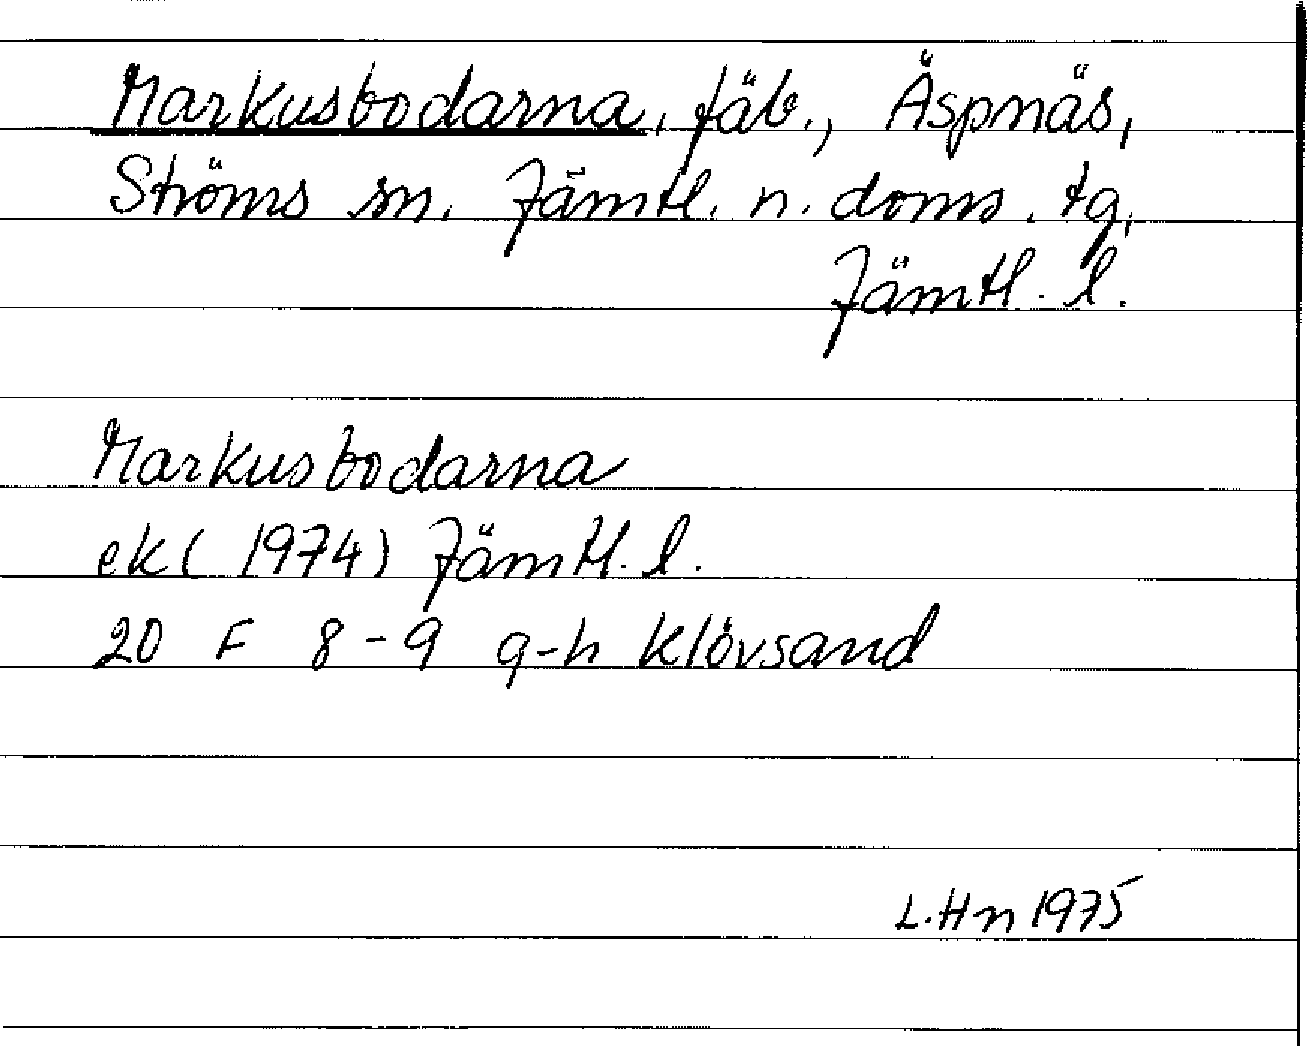 Markusbodarna, fäb., Äspnäs,
Ströms sn, Jämtl. n. doms. tg,
Jämtl. l.
Markusbodarna
ek (1974) Jämtl. l.
20 F 8-9 g-h Klövsand
L.Hn 1975